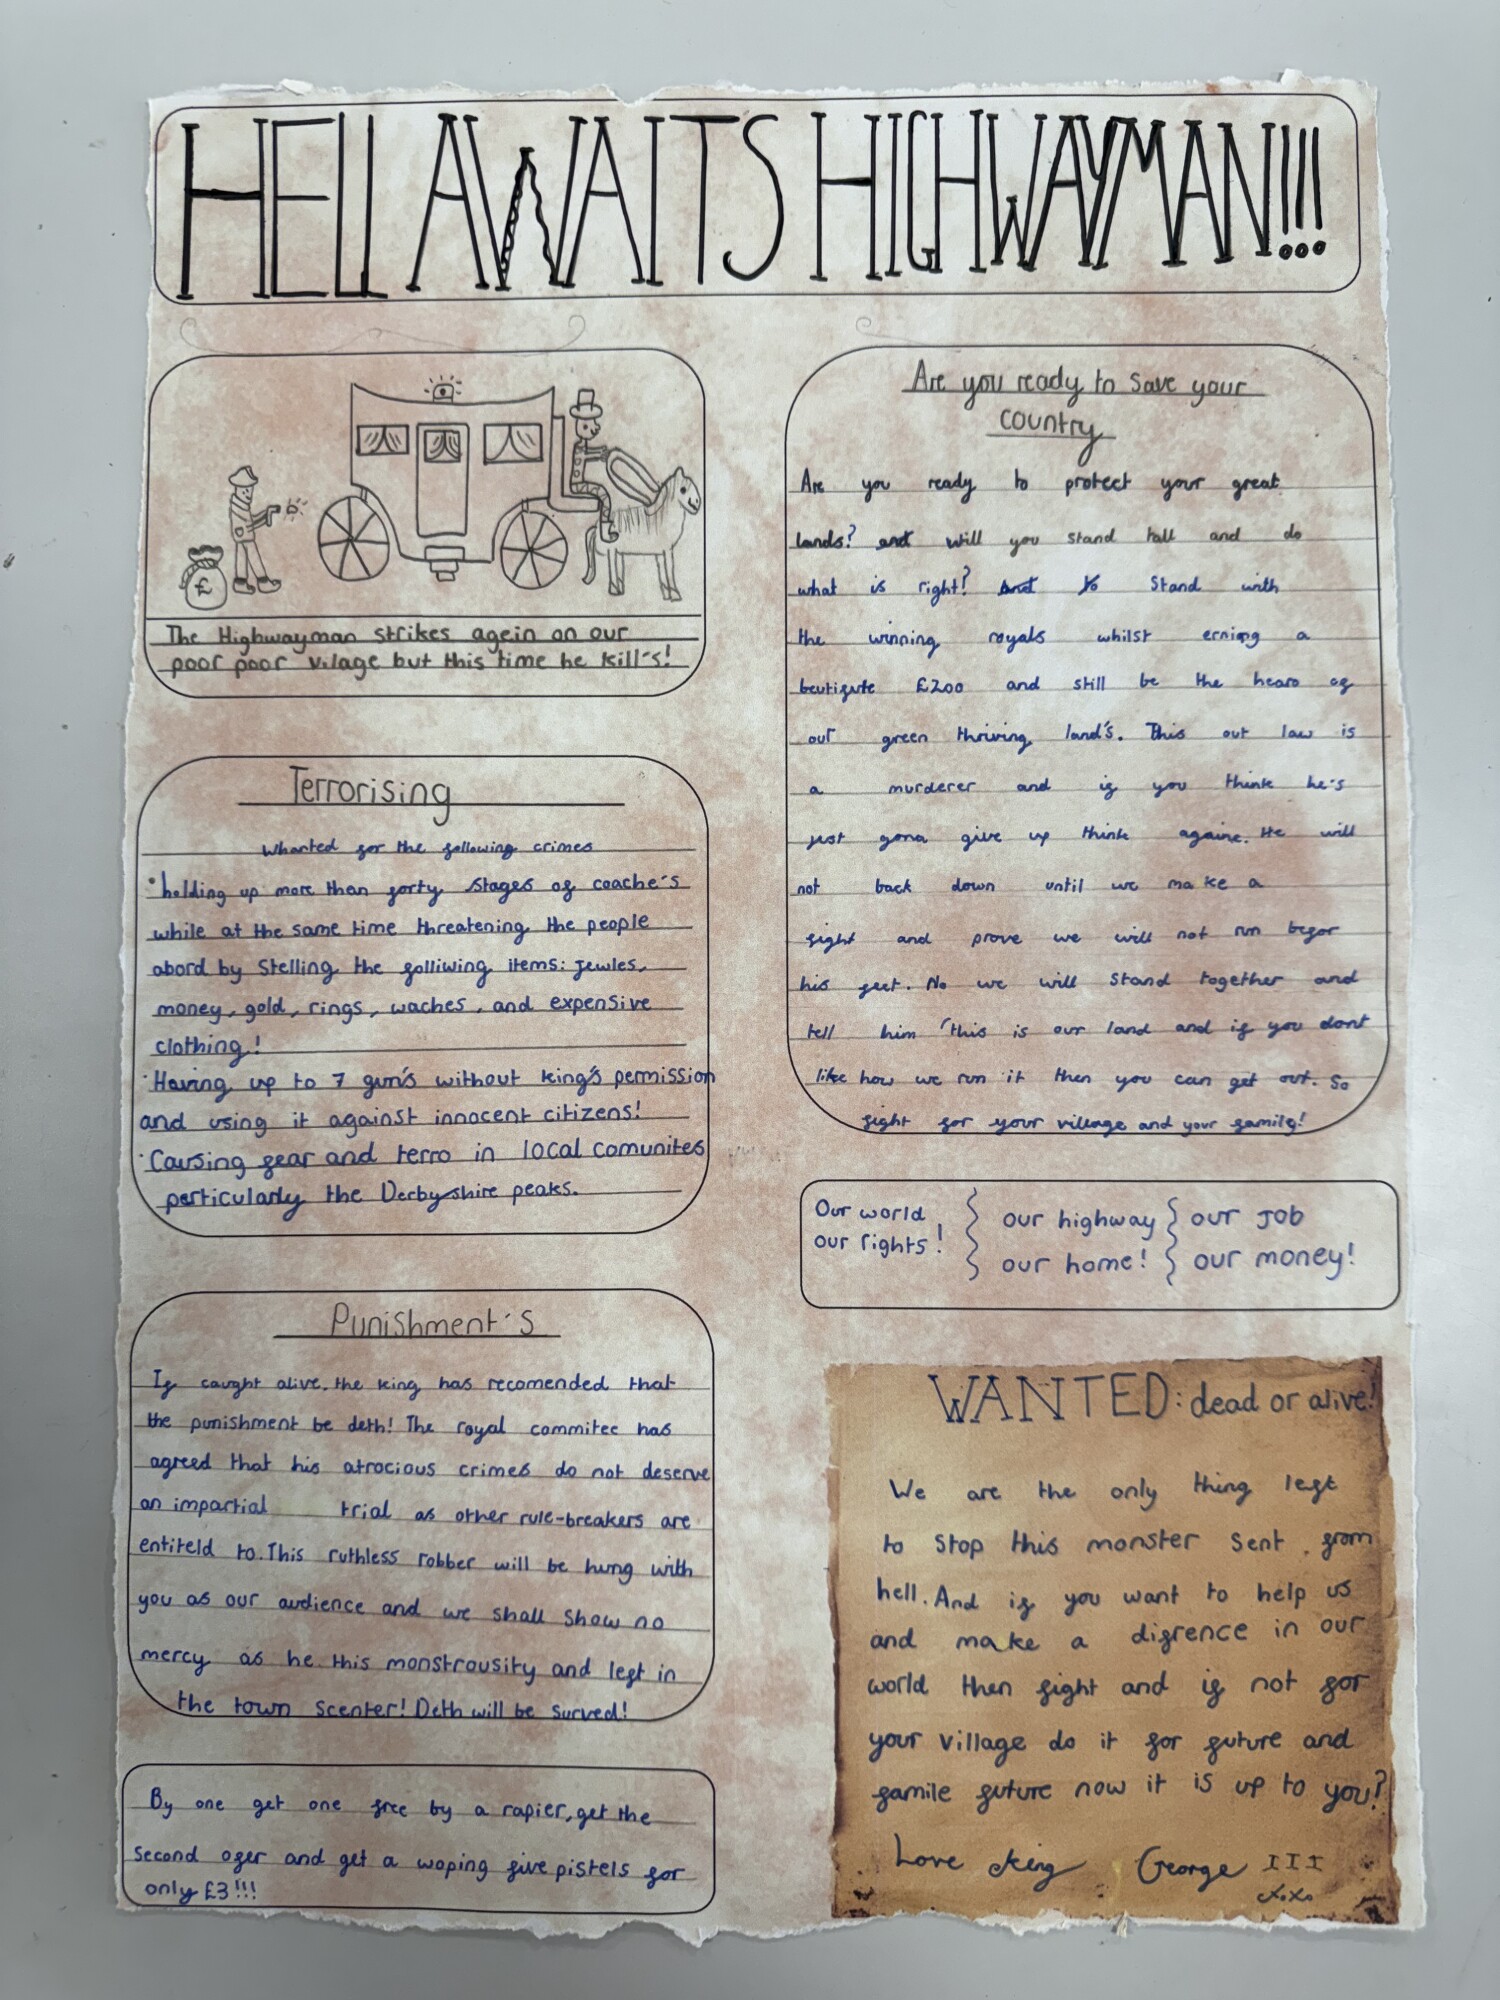 HELL AWAITS HIGHWAYMAN!!!
£
The Highwayman strikes agein on our
poor poor vilage but this time he kill's!
Terrorising
Whanted for the following crimes
• holding up more than forty stages of coache's
while at the same time threatening the people
abord by Stelling the folliwing items: jewles,
money, gold, rings, waches, and expensive
clothing!
· Having up to 7 gun's without king's permission
and using it against innocent citizens!
· Causing fear and terro in local comunites
perticularly the Derbyshire peaks.
Punishment's
If caught alive. the king has recomended that
the punishment be deth! The royal commitee has
agreed that his atrocious crimes do not deserve
an impartial trial as other rule-breakers are
entiteld to. This ruthless robber will be hung with
you as our audience and we shall show no
mercy as he this monstrousity and left in
the town scenter! Deth will be surved!
By one get one free by a rapier, get the
second ofer and get a woping five pistels for
only £3!!!
Are you ready to save your
country
Are you ready to protect your great
lands? and will you stand tall and do
what is right? And to Stand with
the winning royals whilst erning a
beutifute £200 and still be the hearo of
our green thriving land's. This out law is
a murderer and if you think he's
just gona give up think againe. He will
not back down until we make a
fight and prove we will not run befor
his feet. No we will stand together and
tell him 'this is our land and if you dont
like how we run it then you can get out. So
fight for your village and your family!
Our world
our rights!
our highway
our home!
our job
our money!
WANTED: dead or alive!
We are the only thing left
to stop this monster sent from
hell. And if you want to help us
and make a difrence in our
world then fight and if not for
your village do it for future and
famile future now it is up to you?
Love king George III
xoxo